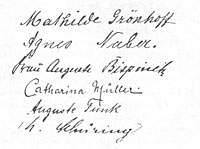 Mathilde Grönhoff
Agnes Naber.
Frau Auguste Bispinck
Catharina Müller.
Auguste Tunk
h. Schüring